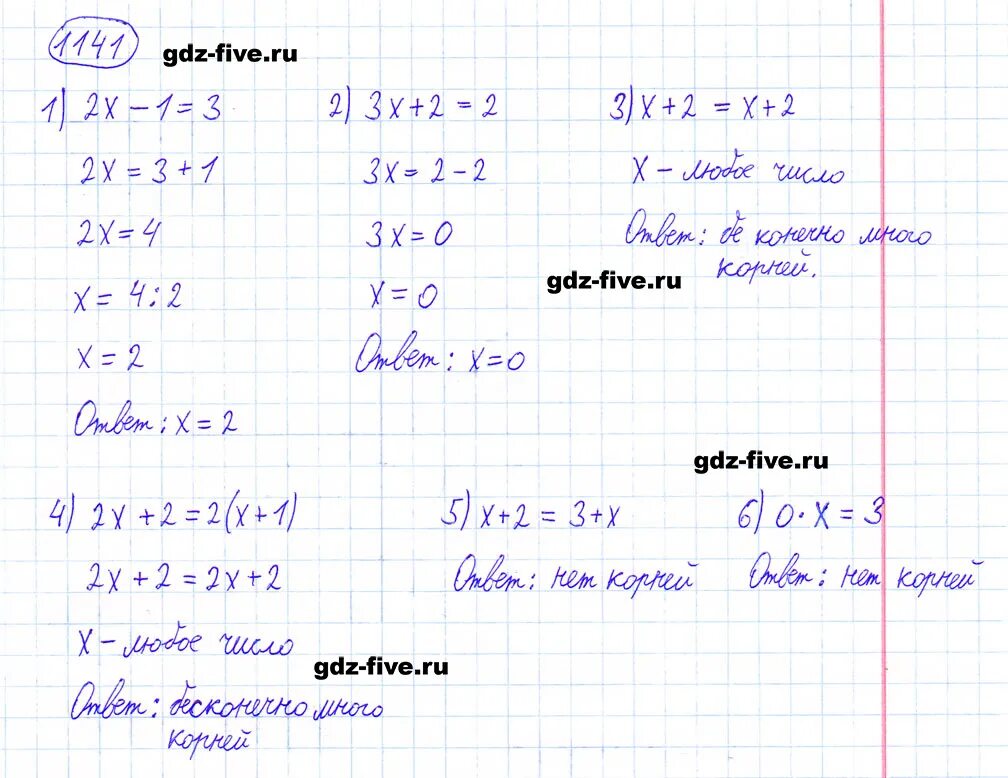 1141
gdz-five.ru
1) 2x - 1 = 3
2x = 3 + 1
2x = 4
x = 4 : 2
x = 2
Ответ: x = 2
2) 3x + 2 = 2
3x = 2 - 2
3x = 0
x = 0
Ответ: x = 0
3) x + 2 = x + 2
x - любое число
Ответ: бе конечно много
корней.
gdz-five.ru
gdz-five.ru
4) 2x + 2 = 2(x + 1)
2x + 2 = 2x + 2
x - любое число
Ответ: бесконечно много
корней
gdz-five.ru
5) x + 2 = 3 + x
Ответ: нет корней
6) 0 · x = 3
Ответ: нет корней